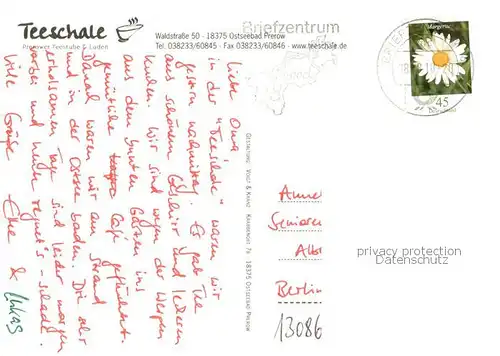 Teeschale
Prerower Teestube & Laden
Waldstraße 50 - 18375 Ostseebad Prerow
Tel. 038233/60845 - Fax 038233/60846 - www.teeschale.de
Briefzentrum
Margerite
45
Liebe Oma,
in der "Teeschale" waren wir
gestern nachmittag. Es gab Tee
aus schönem Geschirr und leckeren
Kuchen. Wir sind wegen der Wespen
aus dem bunten Garten ins
gemütliche Café geflüchtet.
Danach waren wir am Strand
und in der Ostsee baden. Die sehr
erholsamen Tage sind leider morgen
vorbei und heute regnet's - schade!
Viele Grüße Elke &
Lukas
Gestaltung: Voigt & Kranz · 18375 Ostseebad Prerow
Anne
Senioren
Albr
Berlin
13086
privacy protection
Datenschutz